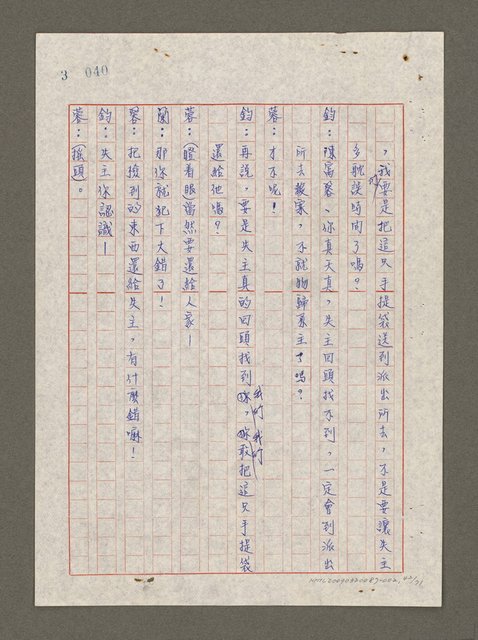 3 040
，我要是把這只手提袋送到派出所去，不是要讓失主
多耽誤時間了嗎？
鈞：陳富蓉，你真天真，失主回頭找不到，一定會到派出
所去報案，不就物歸原主了嗎？
蓉：才不呢！
鈞：再說，要是失主真的回頭找到我們，我們敢把這只手提袋
還給他嗎？
蓉：（瞪着眼）當然要還給人家！
蘭：那你就犯下大錯了！
蓉：把撿到的東西還給失主，有什麼錯嘛！
鈞：失主你認識！
蓉：（搖頭）。
NMTL20090820087-002, 42/71